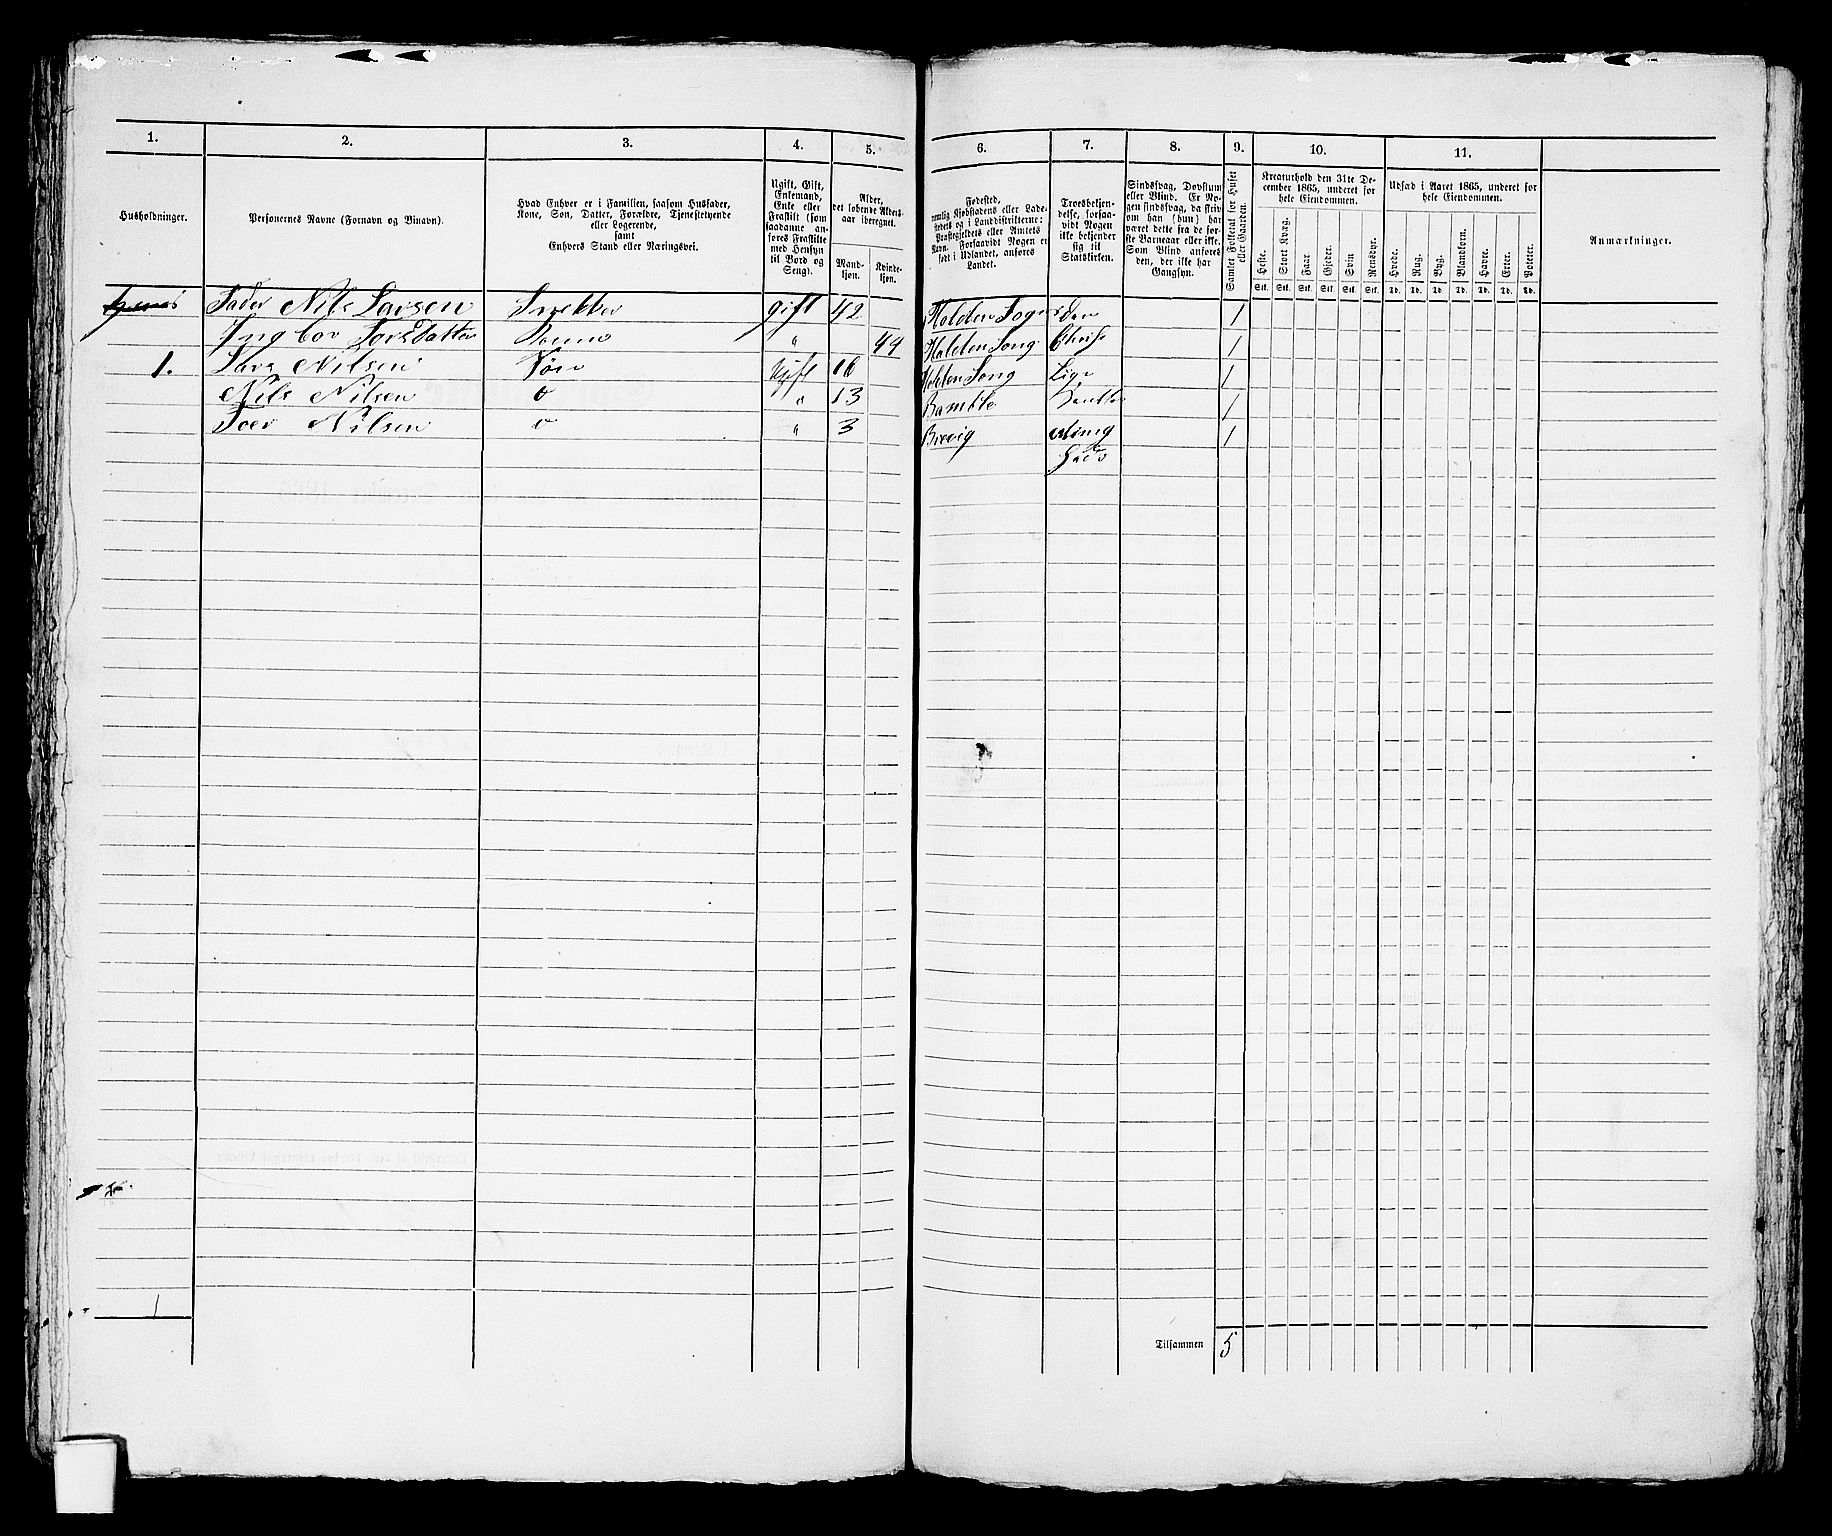 1.
2.
3.
4.
5.
6.
7.
8.
9.
10.
11.
Husholdninger.
Personernes Navne (Fornavn og Binavn).
Hvad Enhver er i Familien, saasom Husfader,
Kone, Søn, Datter, Forældre, Tjenestetyende
eller Logerende,
samt
Enhvers Stand eller Næringsvei.
Ugift, Gift,
Enkemand,
Enke eller
Fraskilt (som
saadanne an-
føres Fraskilte
med Hensyn
til Bord og
Seng).
Alder,
det løbende Alders-
aar iberegnet.
Mand-
kjøn.
Kvinde-
kjøn.
Fødested,
nemlig Kjøbstadens eller Lade-
stedets og i Landdistrikterne:
Præstegjeldets eller Amtets
Navn. Forsaavidt Nogen er
født i Udlandet, anføres
Landet.
Troesbekjen-
delse, forsaa-
vidt Nogen
ikke bekjender
sig til
Statskirken.
Sindssvag, Døvstum
eller Blind. Er No-
gen sindssvag, da skriv
om han (hun) har
været dette fra de før-
ste Barneaar eller ikke.
Som Blind anføres
den, der ikke har
Gangsyn.
Samlet Folketal for Huset
eller Gaarden.
Kreaturhold den 31te De-
cember 1865, underet for
hele Eiendommen.
Heste.
Stort Kvæg.
Faar.
Gjeder.
Svin
Rensdyr.
Stk. Stk. Stk. Stk. Stk. Stk.
Udsæd i Aaret 1865, underet for
hele Eiendommen.
Hvede.
Rug.
Byg.
Blandkorn.
Havre.
Erter.
Poteter.
Td. Td. Td. Td. Td. Td. Td.
Anmærkninger.
Fader Nils Larsen Snekker gift 42 Holden Sogn Den 1
Ingbor LarsDatter " 44 Holden Song Christ 1
1. Lars Nilsen Søn Ugift 16 Holden Song Lige 1
Nils Nilsen o " 13 Bamble 1
Toer Nilsen o " 3 Brevig 1
1
Tilsammen 5